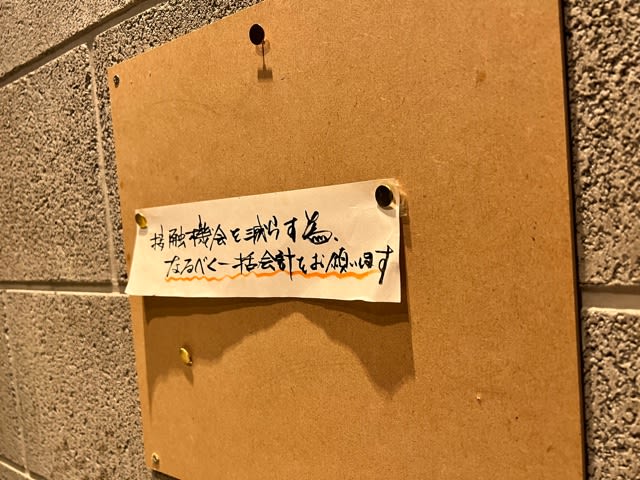 接触機会を減らす為、
なるべく一括会計をお願います